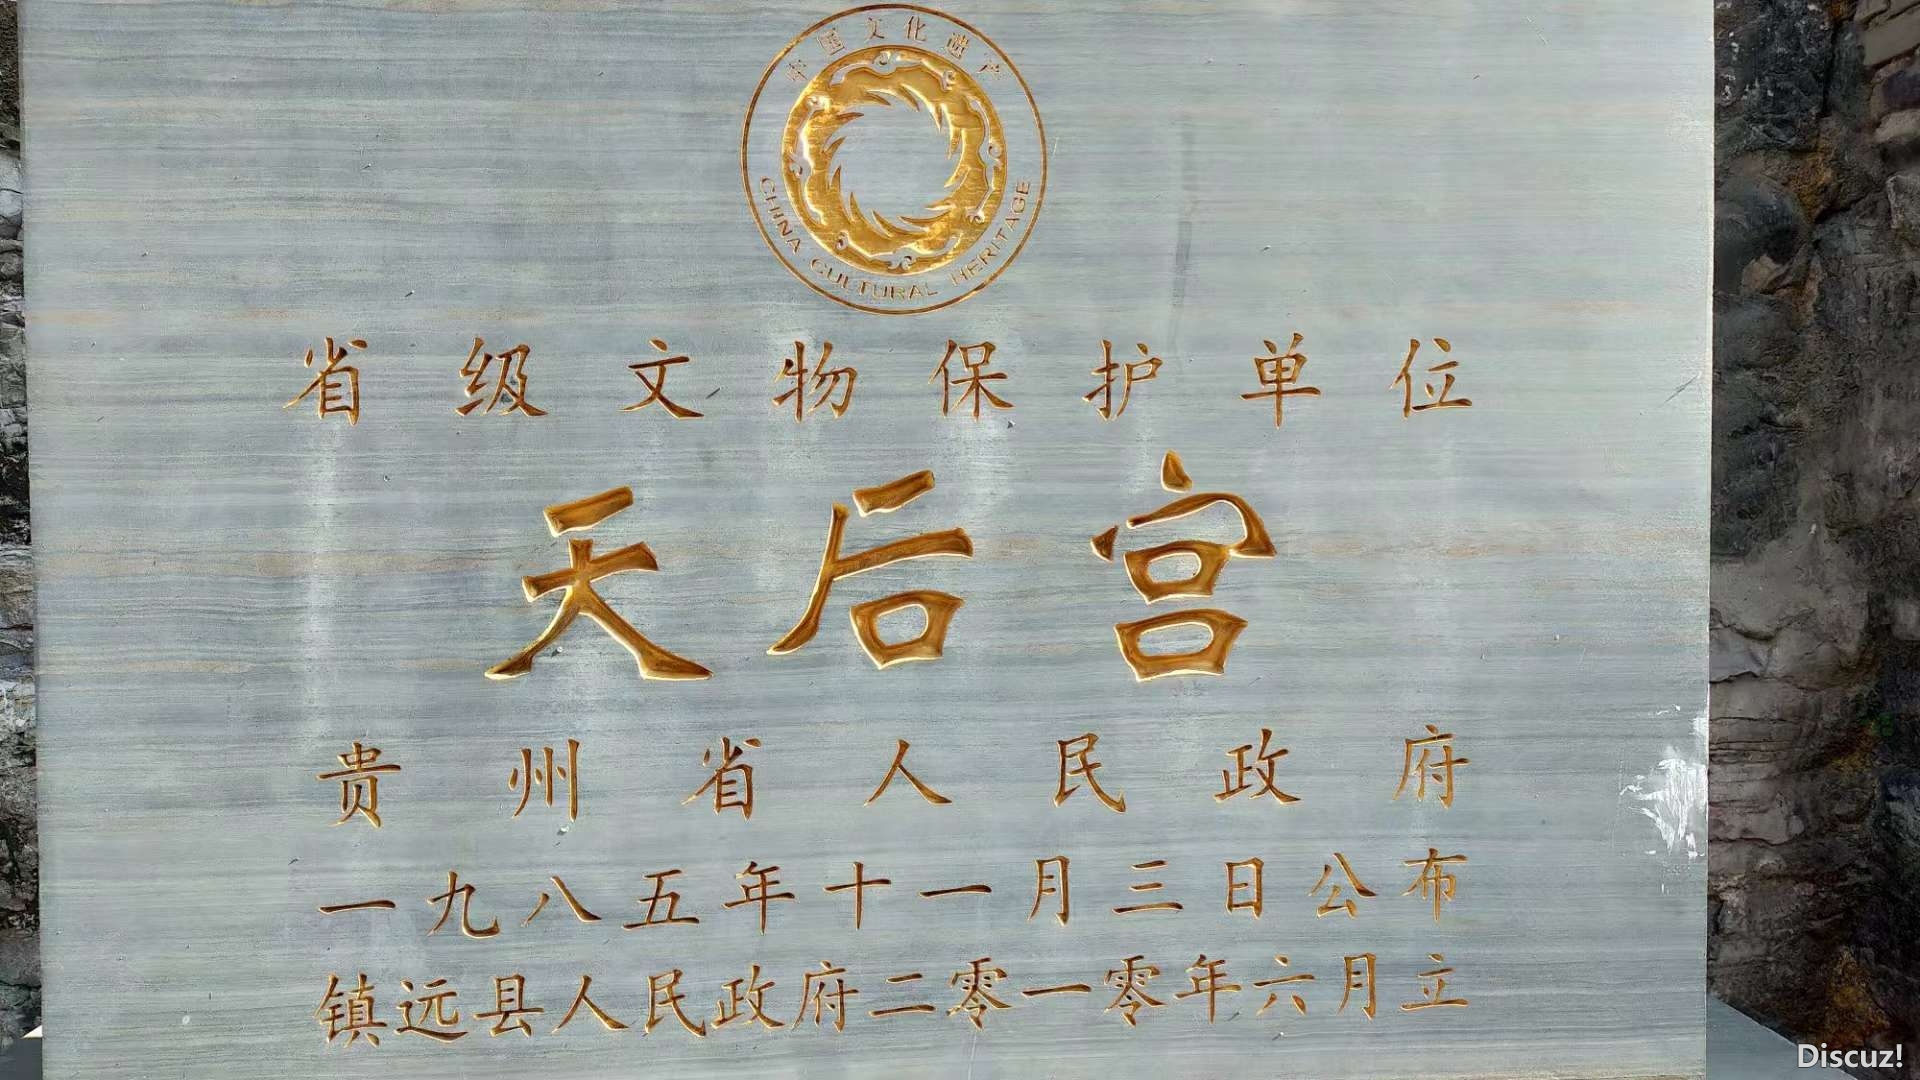 中国文化遗产
CHINA CULTURAL HERITAGE
省级文物保护单位
天后宫
贵州省人民政府
一九八五年十一月三日公布
镇远县人民政府二零一零年六月立
Discuz!